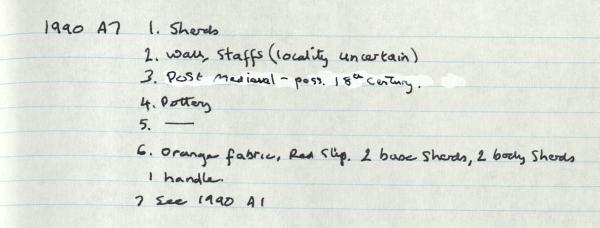 1990 A7 1. Sherds
2. Wall, Staffs (locality uncertain)
3. Post Medieval - poss. 18th Century.
4. Pottery
5. —
6. Orange fabric, Red Slip. 2 base Sherds, 2 body Sherds
1 handle.
7 See 1990 A1